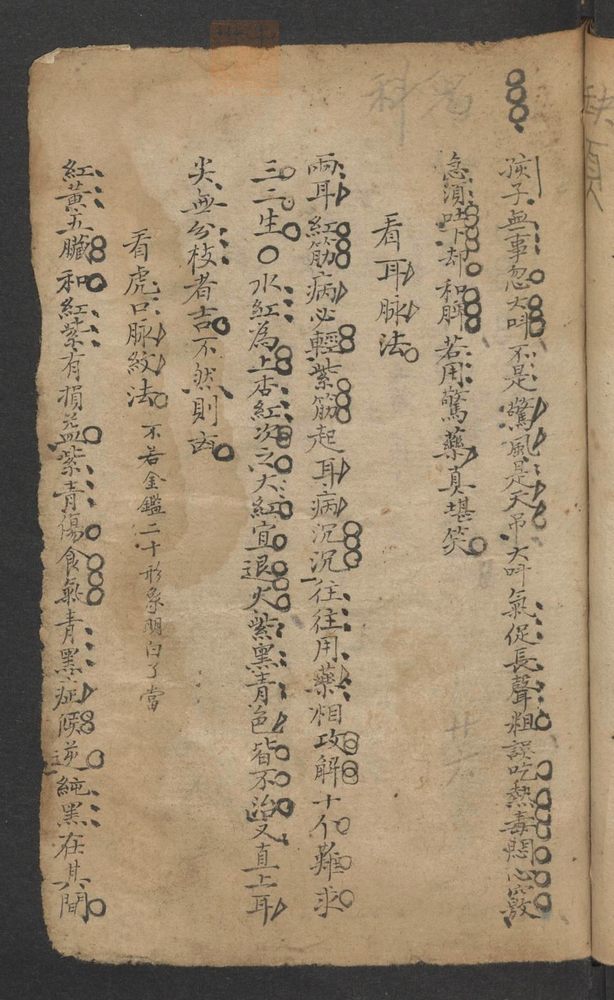 孩子無事忽大呌不是驚風是天吊大呌氣促長聲粗誤吃熱毒悶心竅
急須吐下却和脾若用驚藥真堪笑
看耳脉法
兩耳紅筋病必輕紫筋起耳病沉沉往往用藥相攻解十个難求
三二生〇水紅為上杏紅次之大紅宜退火紫黑青色皆不治又直上耳
尖無分枝者吉不然則凶
看虎口脉紋法 不若金鑑二十形象明白了當
紅黃五臟和紅紫有損益紫青傷食氣青黑症候逆純黑在其間
兒科